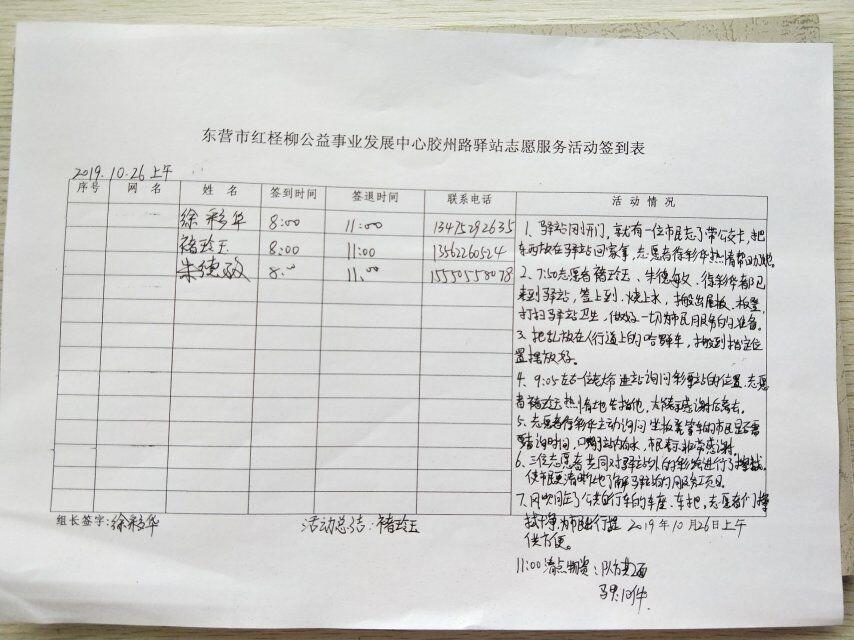 东营市红柽柳公益事业发展中心胶州路驿站志愿服务活动签到表
2019.10.26上午
序号 网名 姓名 签到时间 签退时间 联系电话 活动情况
徐彩华 8:00 11:00 13475292635
褚玲玉 8:00 11:00 13562260524
朱德敏 8:00 11:00 15550558078
1、驿站刚开门,就有一位市民忘了带公交卡,把
东西放在驿站回家拿,志愿者徐彩华热情帮助
2、7:50志愿者褚玲玉、朱德敏、徐彩华都已
来到驿站,签上到、烧上水,搬出展板、板凳,
打扫驿站卫生,做好一切为市民服务的准备。
3、把乱放在人行道上的哈罗单车,搬到指定位
置摆放好。
4、9:05左右一位大爷进站询问彩票站的位置,志愿
者褚玲玉热情地告诉他,大爷表示感谢后离去。
5、志愿者徐彩华主动询问坐板凳等车的市民是否需
要查询时间,喝站内的水,市民表示非常感谢。
6、三位志愿者共同对驿站外的彩绘进行了擦拭,
使市民更清晰地了解驿站的服务项目。
7、风吹 了公共自行车的车座、车把,志愿者们擦
拭干净,为市民出行提
供方便。
组长签字:徐彩华 活动总结:褚玲玉 2019年10月26日上午
11:00清点物资:队旗1面
马甲10件.